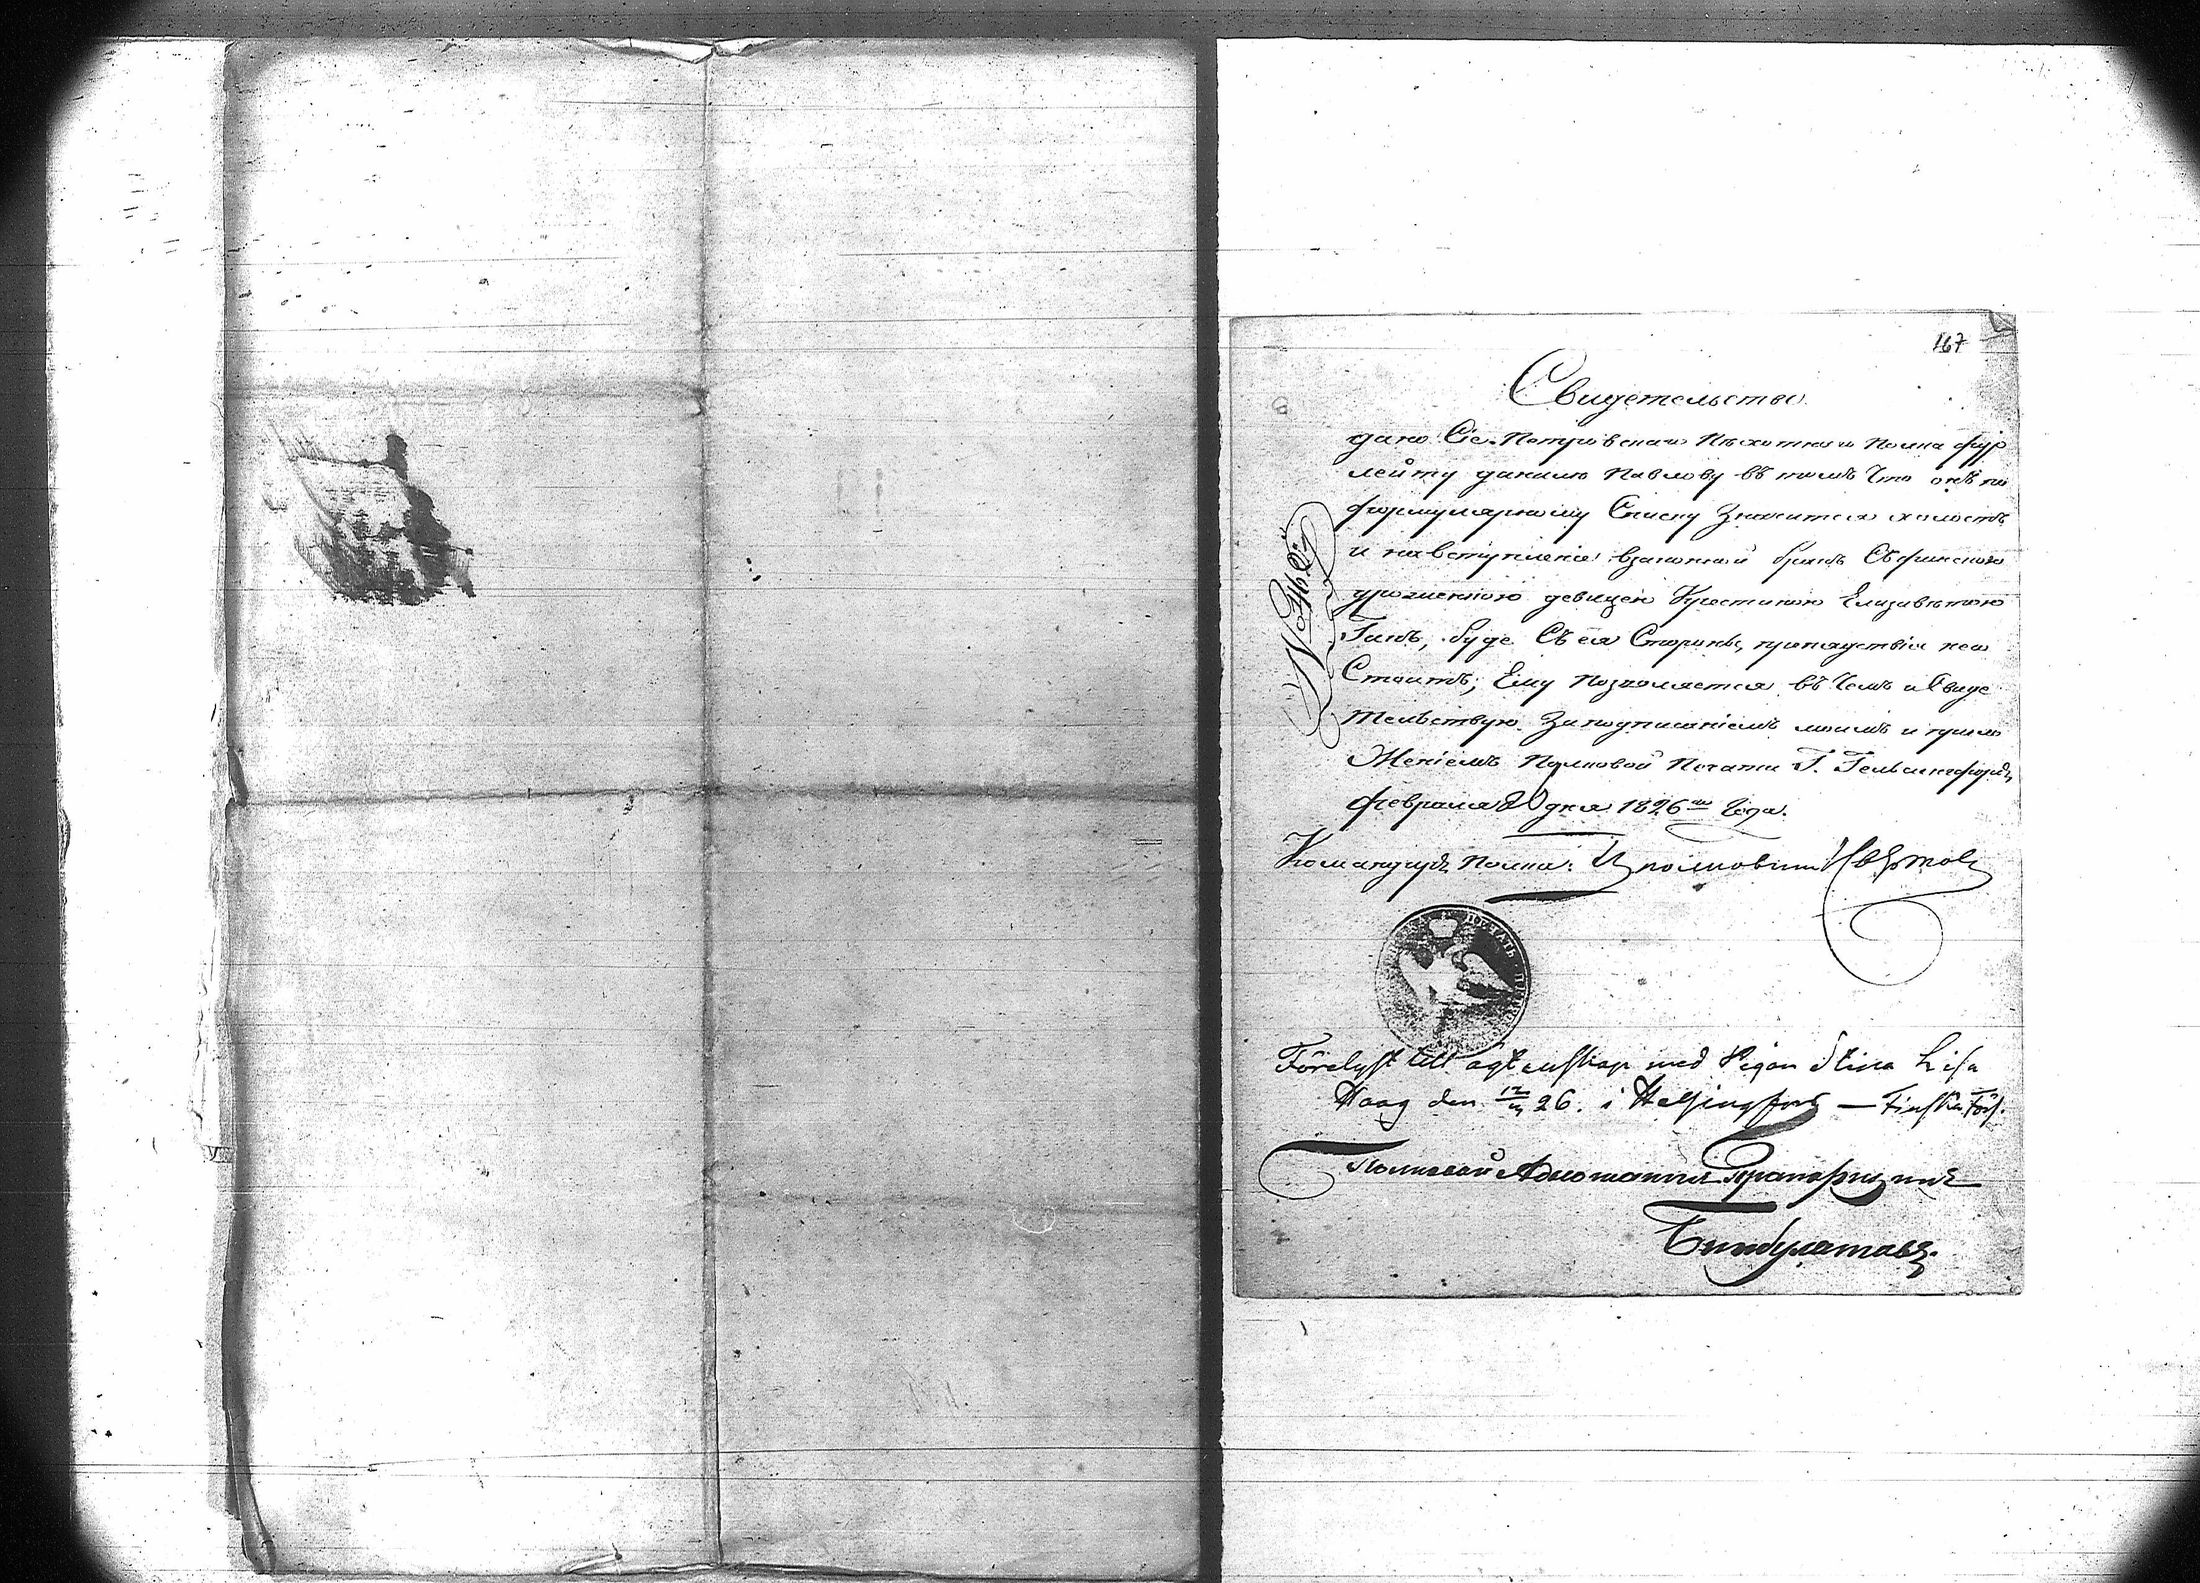 167
Свидетельство
дано Сіе Петровскаго Пѣхотнаго полка фур
лейту данилю Павлову въ томъ Что онъ по
формулярному Списку Значится холостъ
и навступленіе взаконной бракъ Съ финскою
уроженкою девицею Кристиною Елизаветою
Гакъ, буде Съ ея Стороны, препядствія не со
Стоитъ, Ему позволяется въ Чемъ и Свиде
тельствую Заподписаніемъ моимъ и прило
Женіемъ Полковой Печати Г. Гельсингфорсъ,
февраля 20 дня 1826го Года.
Командиръ полка: Подполковникъ
ПЕЧАТЬ
Förelyst till ägtenskap med Pigan Stina Lisa
Haag den 12/3 26. i Helsingfors — Finska Förs.
Полковой Адъютантъ Прапорщикъ